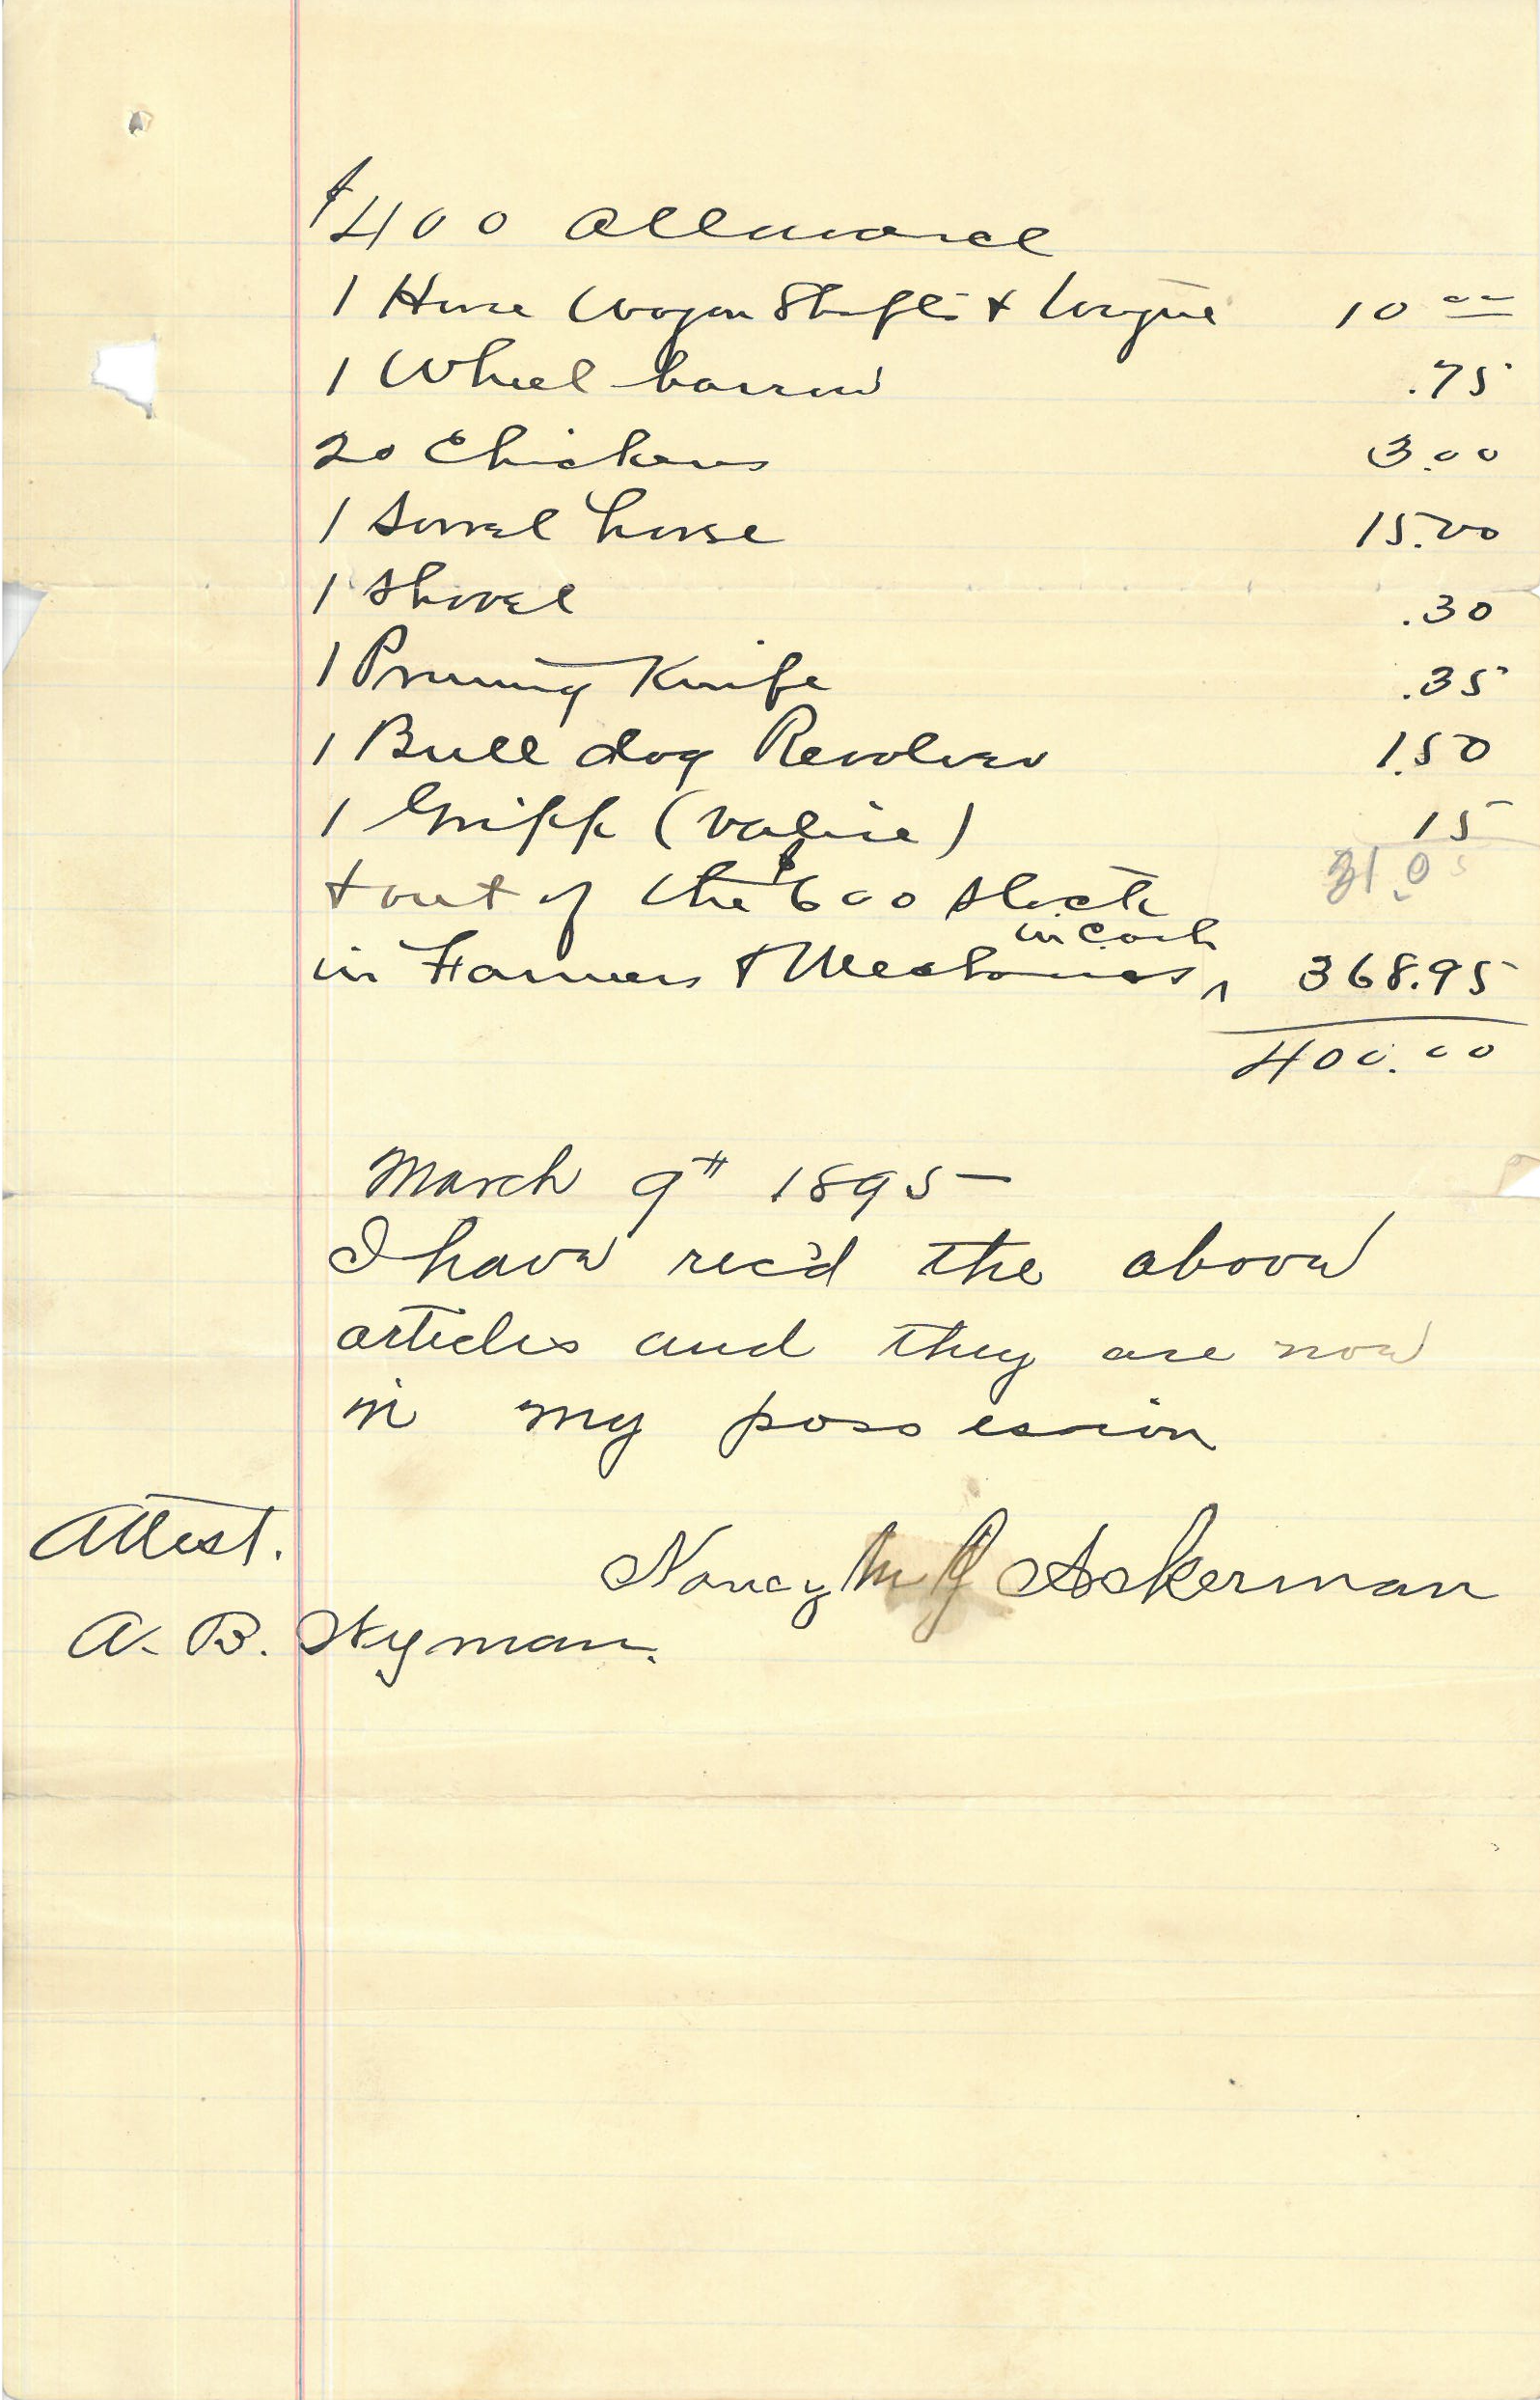 $400 Allowance
1 Horse Wagon Shafts + tongue 10 00
1 Wheel barrow .75
20 Chickens 3.00
1 Sorrel horse 15.00
1 Shovel .30
1 Pruning Knife .35
1 Bull dog Revolver 1.50
1 Gripp (valise) 15
31.05
+ out of the $600 stock
in Farmers & Mechanics in cash 368.95
400.00
March 9th 1895
I have rec'd the above
articles and they are now
in my possession
Attest. Nancy M J Ackerman
A. B. Hyman.